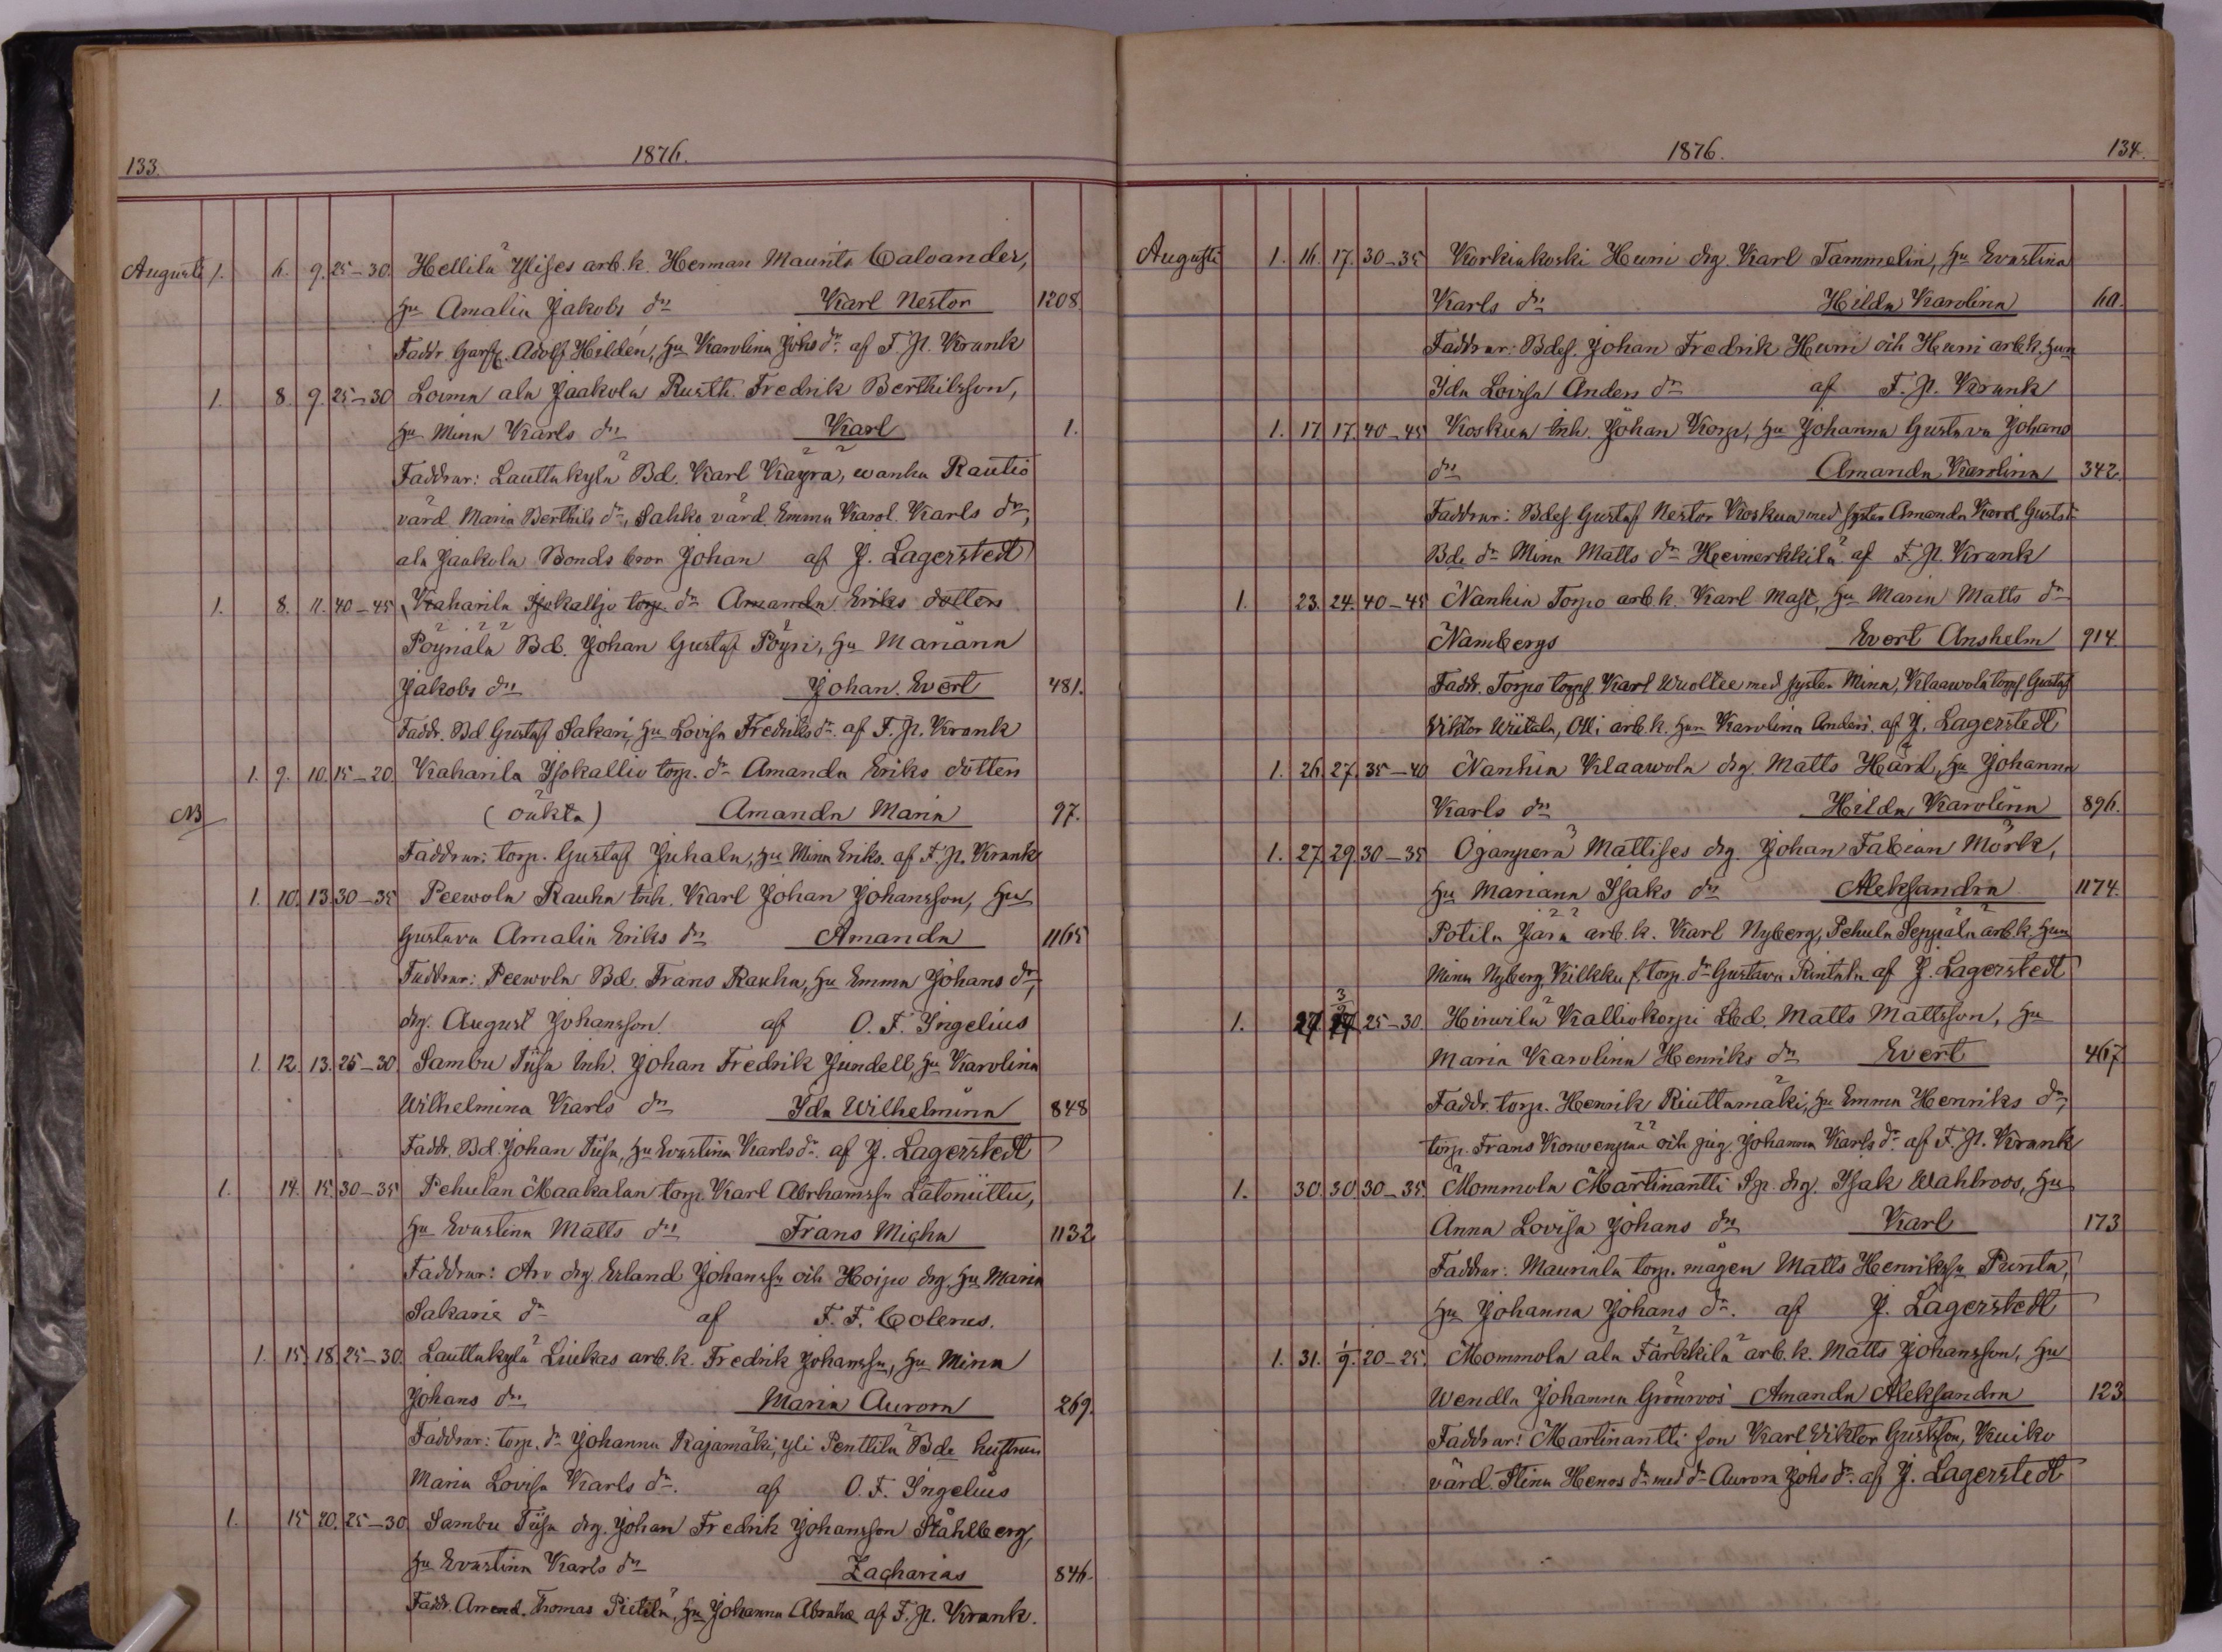 133. 1876.
Augusti 1. 6. 9. 25-30. Hellilä Ylises arb.k. Herman Maurits Calvander,
Hu Amalia Jakobs dr Karl Nestor 1208.
Faddr. Garfv. Adolf Hildén, Hu Karolina Johs dr. af F. A. Krank
1. 8. 9. 25-30 Loima ala Jaakola Rusth. Fredrik Berthilsson,
Hu Mina Karls dr Karl 1.
Faddrar: Lauttakylä Bd. Karl Käyrä, wanha Rautio
värd. Maria Berthils dr, Sahko värd. Emma Karol. Karls dr,
ala Jaakola Bonds bror Johan af J. Lagerstedt
1. 8. 11. 40-45 Kaharila Isokallio torp. dr Amanda Eriks dotter
Pöynälä Bd. Johan Gustaf Pöyri, Hu Mariana
Jakobs dr Johan Evert 481.
Faddr. Bd Gustaf Sakari, Hu Lovisa Fredriks dr. af F. A. Krank
1. 9. 10. 15-20 Kaharila Isokallio torp. dr Amanda Eriks dotter
NB (oäkta) Amanda Maria 97.
Faddrar: torp. Gustaf Juhala, Hu Mina Eriks. af F. A. Krank
1. 10. 13. 30-35 Peewola Rauha Inh. Karl Johan Johansson, Hu
Gustava Amalia Eriks dr Amanda 1165
Faddrar: Peewola Bd. Frans Rauha, Hu Emma Johans dr,
drg. August Johansson af O. F. Ingelius
1. 12. 13. 25-30 Sambu Tiisa Inh. Johan Fredrik Jundell, Hu Karolina
Wilhelmina Karls dr Ida Wilhelmina 848
Faddr. Bd. Johan Tiisa, Hu Evastina Karls dr. af J. Lagerstedt
1. 14. 15. 30-35 Pehulan Maakalan torp. Karl Abrhamssn Latoniittu,
Hu Evastina Matts dr Frans Micha 1132
Faddrar: Arv drg. Erland Johanssn och Hoipo drg. Hu Maria
Sakaris dr af F. F. Colerus.
1. 15. 18. 25-30. Lauttakylä Liukas arb.k. Fredrik Johanssn, Hu Mina
Johans dr Maria Aurora 269.
Faddrar: torp. dr Johanna Rajamäki, yli Penttilä Bde hustrun
Maria Lovisa Karls dr. af O. F. Ingelius
1. 15 20. 25-30 Sambu Tiisa drg. Johan Fredrik Johansson Ståhlberg,
Hu Evastina Karls dr Zacharias 846.
Faddr. Arrend. Thomas Pietilä, Hu Johanna Abrahs af F. A. Krank.
1876. 134.
Augusti 1. 16. 17. 30-35 Korkiakoski Huni drg. Karl Tammelin, Hu Evastina
Karls dr Hilda Karolina 60.
Faddrar: Bdes. Johan Fredrik Huni och Huni arb.k. Hun
Ida Lovisa Anders dr af F. A. Krank
1. 17 17. 40-45 Koskua Inh. Johan Korp, Hu Johanna Gustava Johans
dr Amanda Karolina 342.
Faddrar: Bdes. Gustaf Nestor Koskua med syster Amanda Karol. Gusts dr
Bde dr Mina Matts dr Heinerkkilä af F. A. Krank
1. 23. 24. 40-45 Nanhia Torpo arb.k. Karl Mast, Hu Maria Matts dr
Nambergs Evert Anshelm 914.
Faddr. Torpo torps. Karl Wuoltee med syster Mina, Klaawola torps Gustaf
Viktor Wiitala, Olli arb.k. Hun Karolina Anders. af J. Lagerstedt
1. 26. 27. 35-40 Nanhia Klaawola drg. Matts Härd, Hu Johanna
Karls dr Hilda Karolina 896.
1. 27. 29. 30-35 Ojanperä Mattises drg. Johan Fabian Mörk,
Hu Mariana Isaks dr Aleksandra 1174.
Potila Jara arb.k. Karl Nyberg, Pehula Seppälä arb.k. Hun
Mina Nyberg, Kilkku f. torp. dr Gustava Rintala af J. Lagerstedt
1. 27 3/9 25-30 Hinwilä Kalliokorpi Lbd. Matts Mattsson, Hu
Maria Karolina Henriks dr Evert 467
Faddr. torp. Henrik Riuttamäki, Hu Emma Henriks dr,
torp. Frans Korwenpää och pig. Johanna Karls dr. af F. A. Krank
1. 30. 30. 30-35. Mommola Martinantti Sp. drg. Isak Wahlroos, Hu
Anna Lovisa Johans dr Karl 173
Faddrar: Mauriala torp. mågen Matts Henrikssn Punta,
Hu Johanna Johans dr. af J. Lagerstedt
1. 31. 1/9. 20-25. Mommola ala Färkkilä arb.k. Matts Johansson, Hu
Wendla Johanna Grönroos Amanda Aleksandra 123
Faddrar: Martinantti son Karl Viktor Gustsson, Kuiko
värd. Stina Henrs dr med dr Aurora Johs dr. af J. Lagerstedt